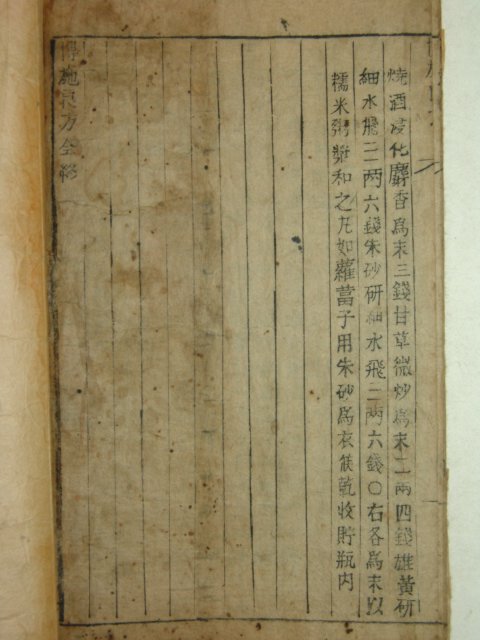 燒酒浸化麝香爲末三錢甘草微炒爲末二兩四錢雄黃研
細水飛二兩六錢朱砂研細水飛二兩六錢○右各爲末以
糯米粥漿和之丸如蘿葍子用朱砂爲衣候乾收貯瓶內
博施良方全終